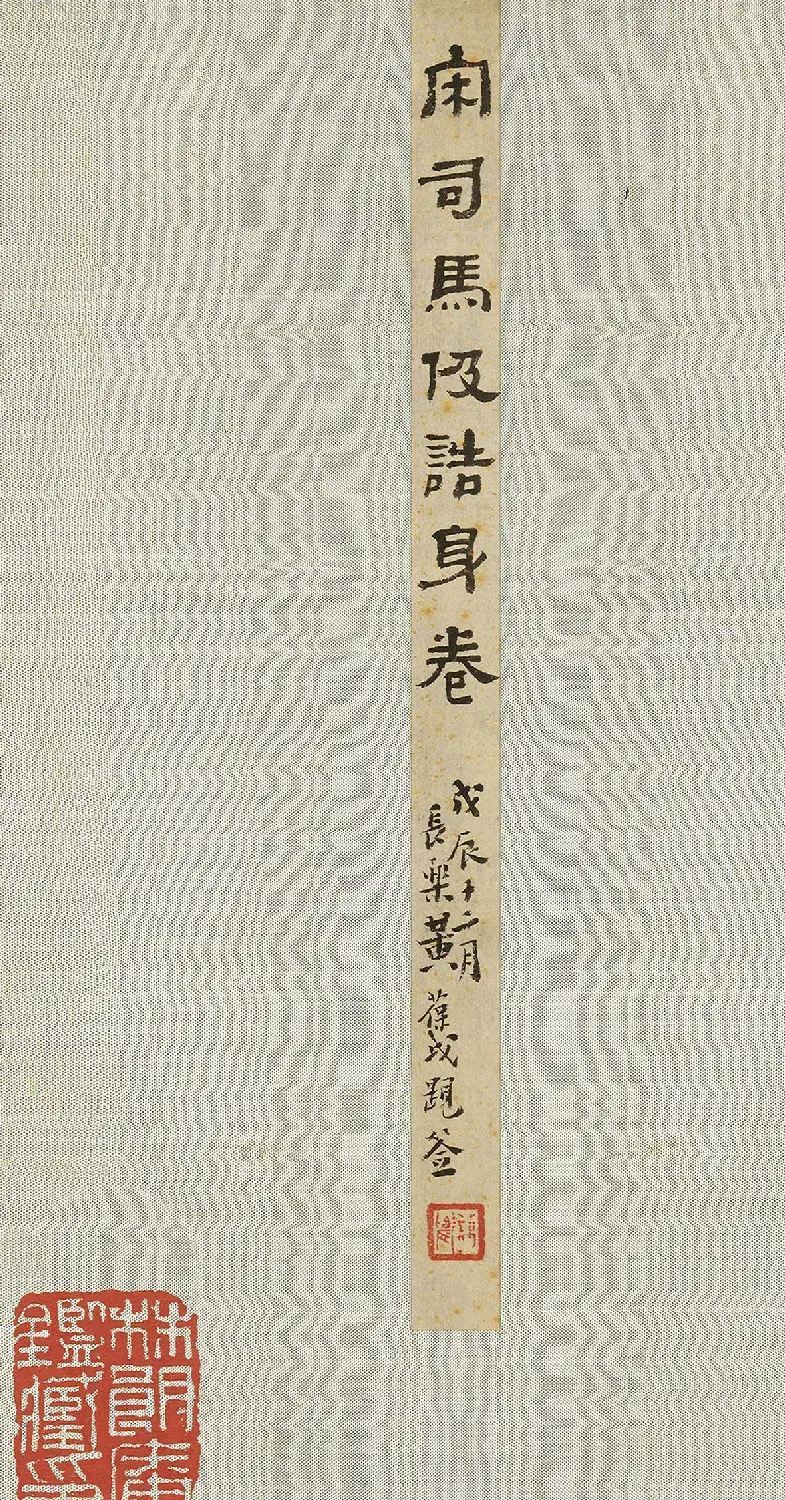 宋司馬伋誥身卷
戊辰十二月
長樂黃葆戉題佥
林朗庵
鑑藏印